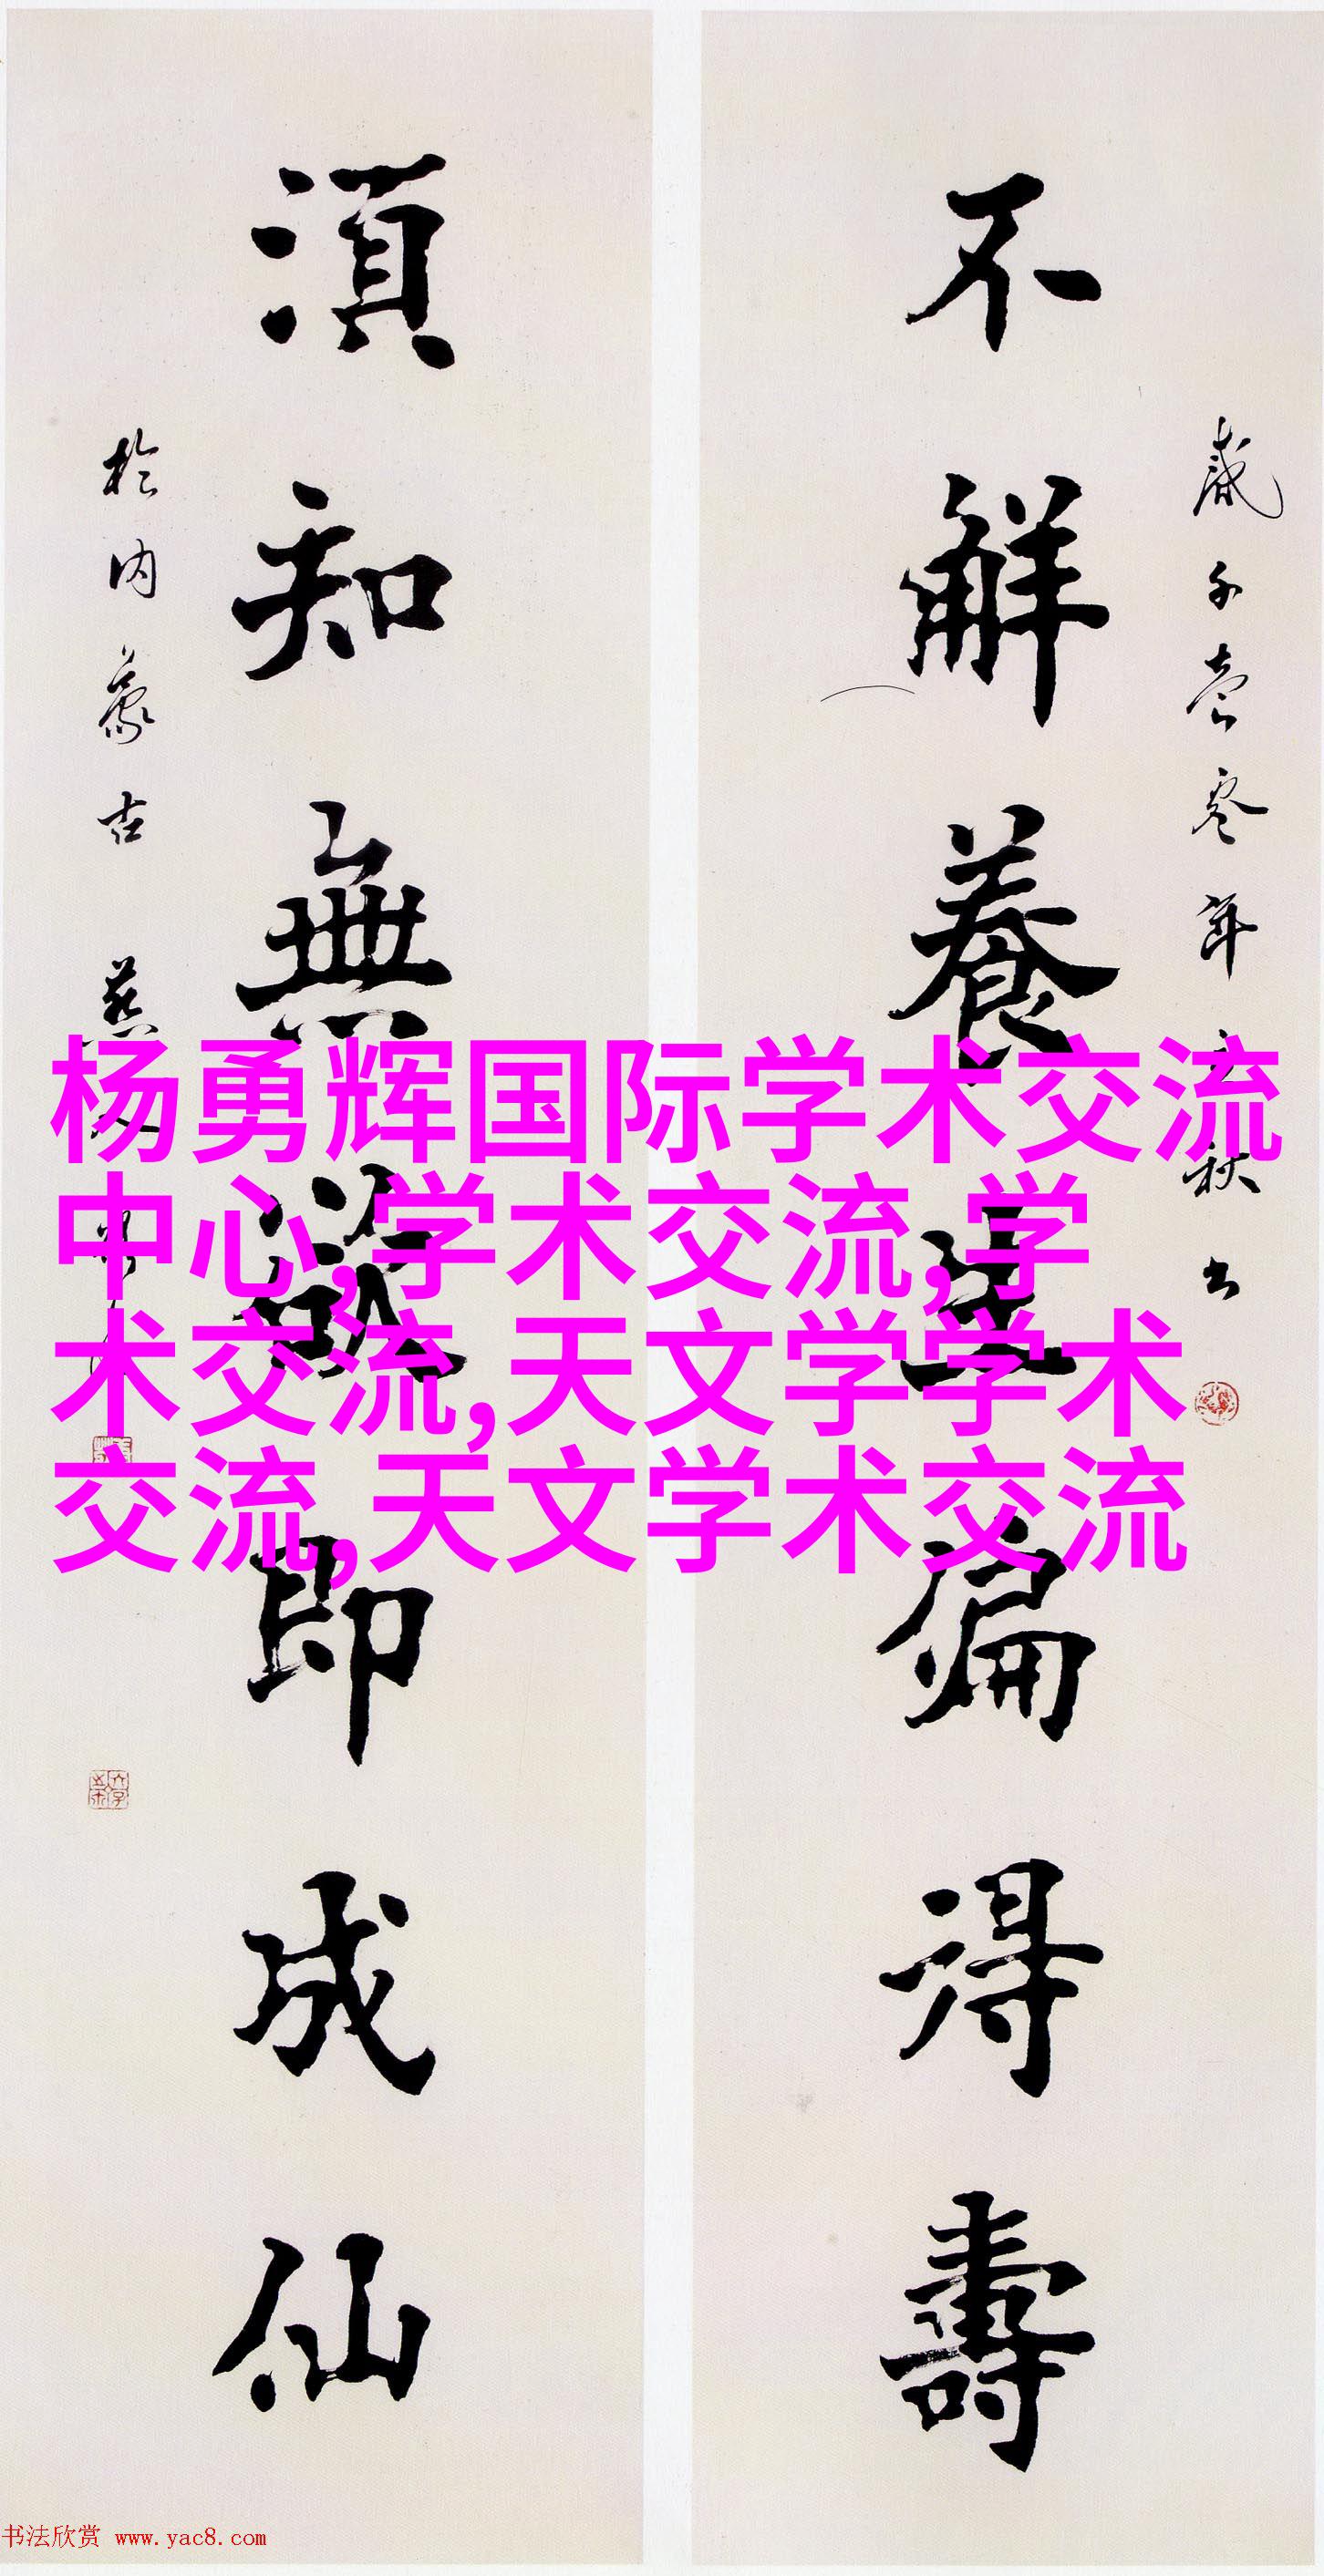 不解養生偏得壽
須知無欲即成仙
於内蒙古
杨勇辉国际学术交流
中心,学术交流,学
术交流,天文学学术
交流,天文学术交流
书法欣赏 www.yac8.com